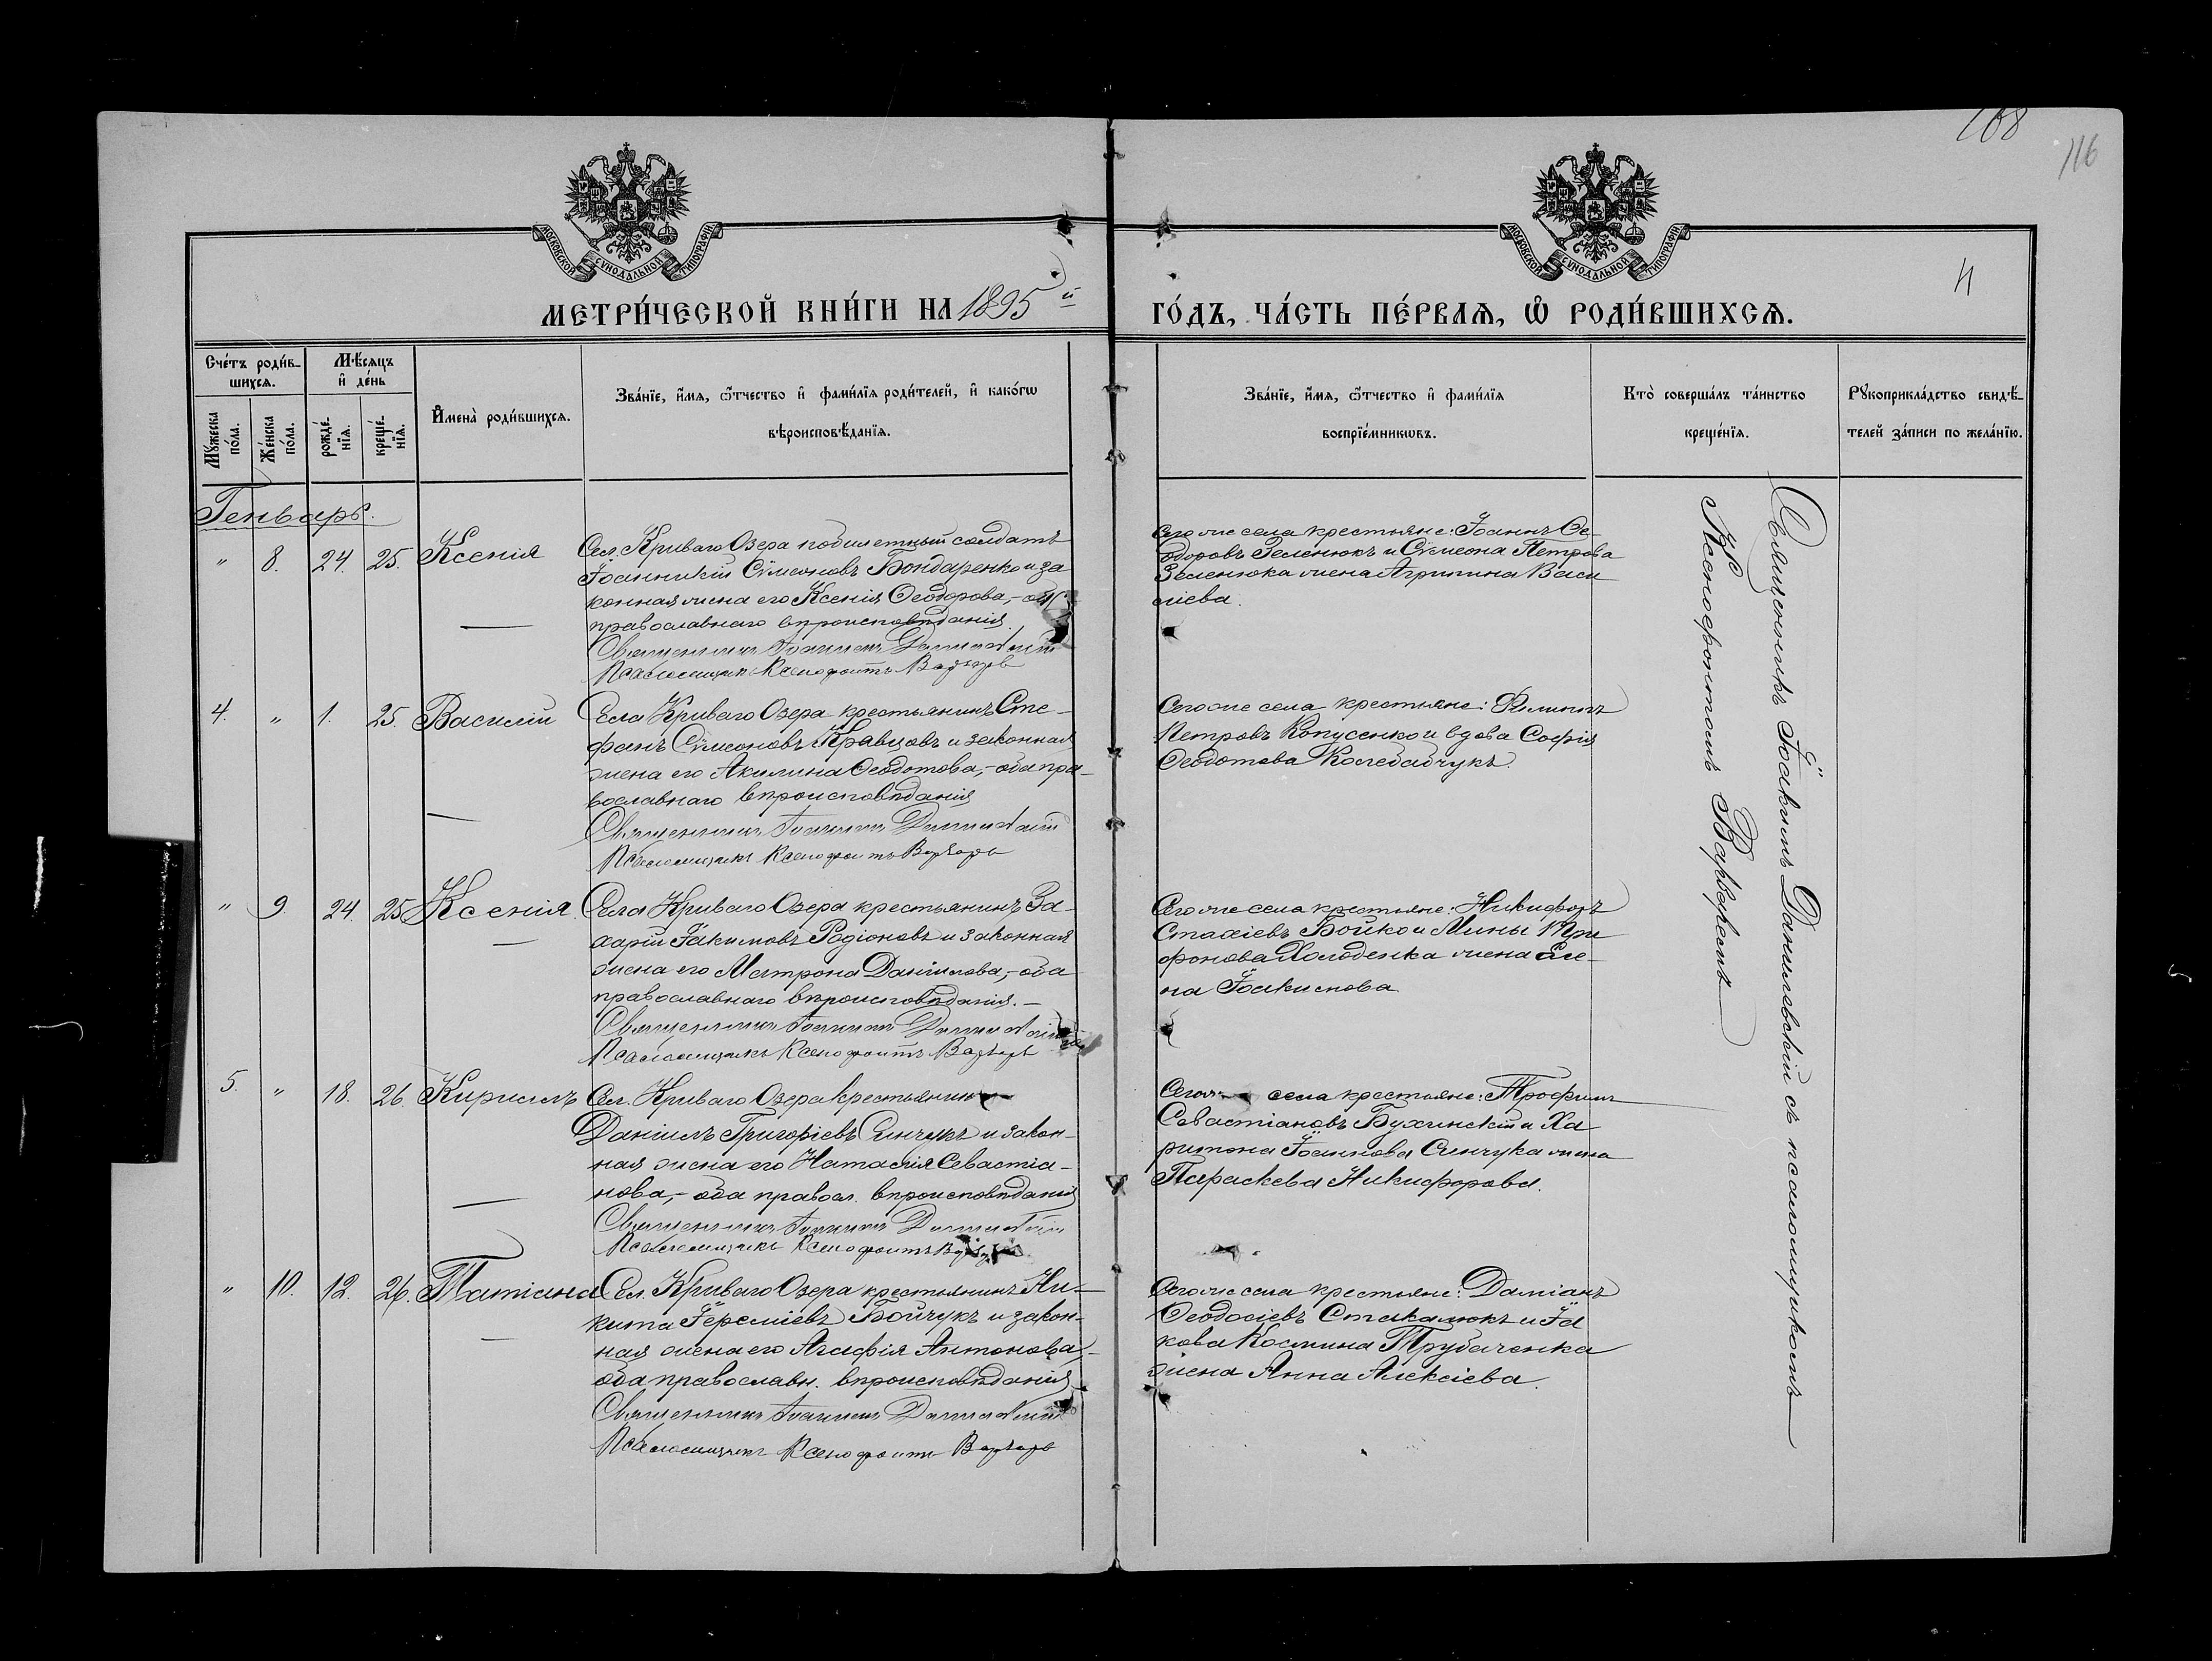 168
116
МОСКОВСКОЙ СѴНОДАЛЬНОЙ ТИПОГРАФІИ
МОСКОВСКОЙ СѴНОДАЛЬНОЙ ТИПОГРАФІИ
МЕТРИ́ЧЕСКОЙ КНИ́ГИ НА 1895 й
ГО́ДЪ, ЧА́СТЬ ПЕ́РВАѦ, Ѡ҆ РОДИ́ВШИХСѦ.
Сче́тъ роди́в-
шихсѧ.
Мꙋ́жеска
по́ла.
Же́нска
по́ла.
Мѣ́сѧцъ
и҆ де́нь
рожде́-
нїѧ.
креще́-
нїѧ.
И҆мена̀ роди́вшихсѧ.
Зва́нїе, и҆́мѧ, ѻ҆́тчество и҆ фами́лїѧ роди́телей, и҆ како́гѡ
вѣроисповѣ́данїѧ.
Зва́нїе, и҆́мѧ, ѻ҆́тчество и҆ фами́лїѧ
воспрїе́мникѡвъ.
Кто̀ соверша́лъ та́инство
креще́нїѧ.
Рꙋкоприкла́дство свидѣ́-
телей за́писи по жела́нїю.
Генварь.
" 8. 24. 25. Ксенія
Сел. Криваго Озера побилетный солдатъ
Іоанникій Сѵмеоновъ Бондаренко и за
конная жена его Ксенія Ѳеодорова,- об
православнаго вѣроисповѣданія.
Священникъ Іоакимъ
Псаломщикъ Ксенофонтъ Варварь
Сего же села крестьяне: Іоаннъ Ѳе
одоровъ Зеленюкъ и Сѵмеона Петрова
Зеленюка жена Агрипина Васи
ліева.
4. " 1. 25. Василій
Села Криваго Озера крестьянинъ Сте-
фанъ Сѵмеоновъ Кравцовъ и законная
жена его Акилина Ѳеодотова,- оба пра-
вославнаго вѣроисповѣданія
Священникъ Іоакимъ
Псаломщикъ Ксенофонтъ Варварь
Сего же села крестьяне: Филиппъ
Петровъ Копусенко и вдова Софія
Ѳеодотова
" 9. 24. 25 Ксенія
Села Криваго Озера крестьянинъ За-
харій Іакимовъ Родіоновъ и законная
жена его Матрона Даніилова,- оба
православнаго вѣроисповѣданія.-
Священникъ Іоакимъ
Псаломщикъ Ксенофонтъ Варварь
Сего же села крестьяне: Никифоръ
Стахіевъ Бойко и Мины Три
фонова Холоденка жена Еле-
на Іоакимова
5. " 18. 26. Кириллъ
Сел. Криваго Озера крестьянинъ
Даніилъ Григоріевъ Синчукъ и закон-
ная жена его Наталія Севастіа-
нова,- оба правосл. вѣроисповѣданія
Священникъ Іоакимъ
Псаломщикъ Ксенофонтъ
села крестьяне: Трофимъ
Севастіановъ Бухинскій и Ха
ритона Іоаннова Синчука жена
Параскева Никифорова.
" 10. 12. 26. Татіана
Сел. Криваго Озера крестьянинъ Ни-
кита Іереміевъ Бойчукъ и закон-
ная жена его Агафія Антонова,-
оба православн. вѣроисповѣданія
Священникъ Іоакимъ
Псаломщикъ Ксенофонтъ Варварь
Сего же села крестьяне: Даміанъ
Ѳеодосіевъ Стакалюкъ и Іа
кова Космина Трубаченка
жена Анна Алексіева.
Священникъ Іоакимъ Данилевскій съ псаломщикомъ
Ксенофонтомъ Варваремъ